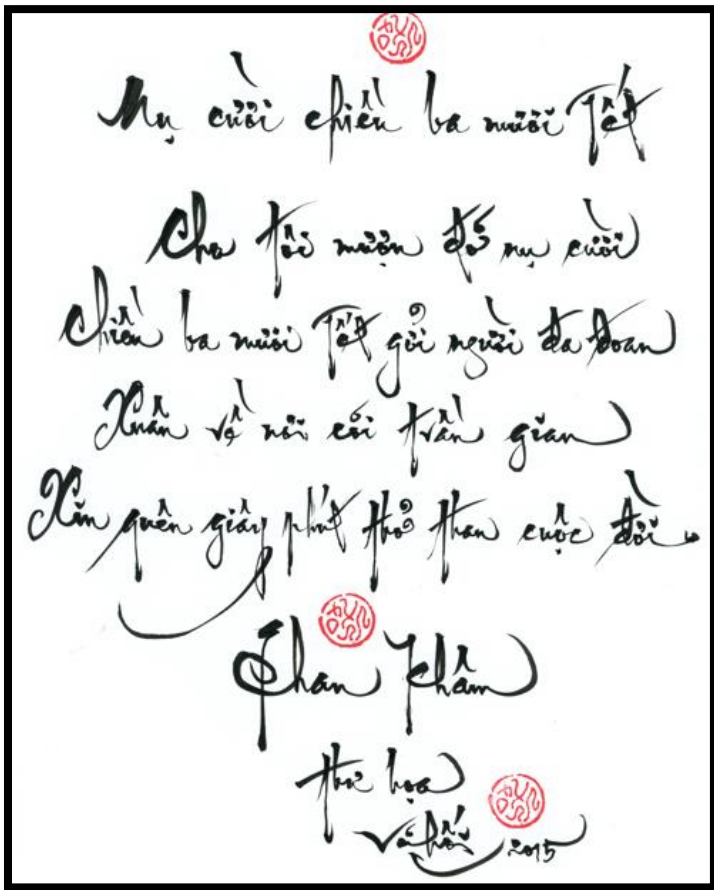 Nụ cười chiều ba mươi Tết
Cho tôi mượn đỡ nụ cười
Chiều ba mươi Tết gửi người đa đoan
Xuân về nơi cõi trần gian
Xin quên giây phút thở than cuộc đời.
Phan Khâm
thư họa
Vũ Hối 2015